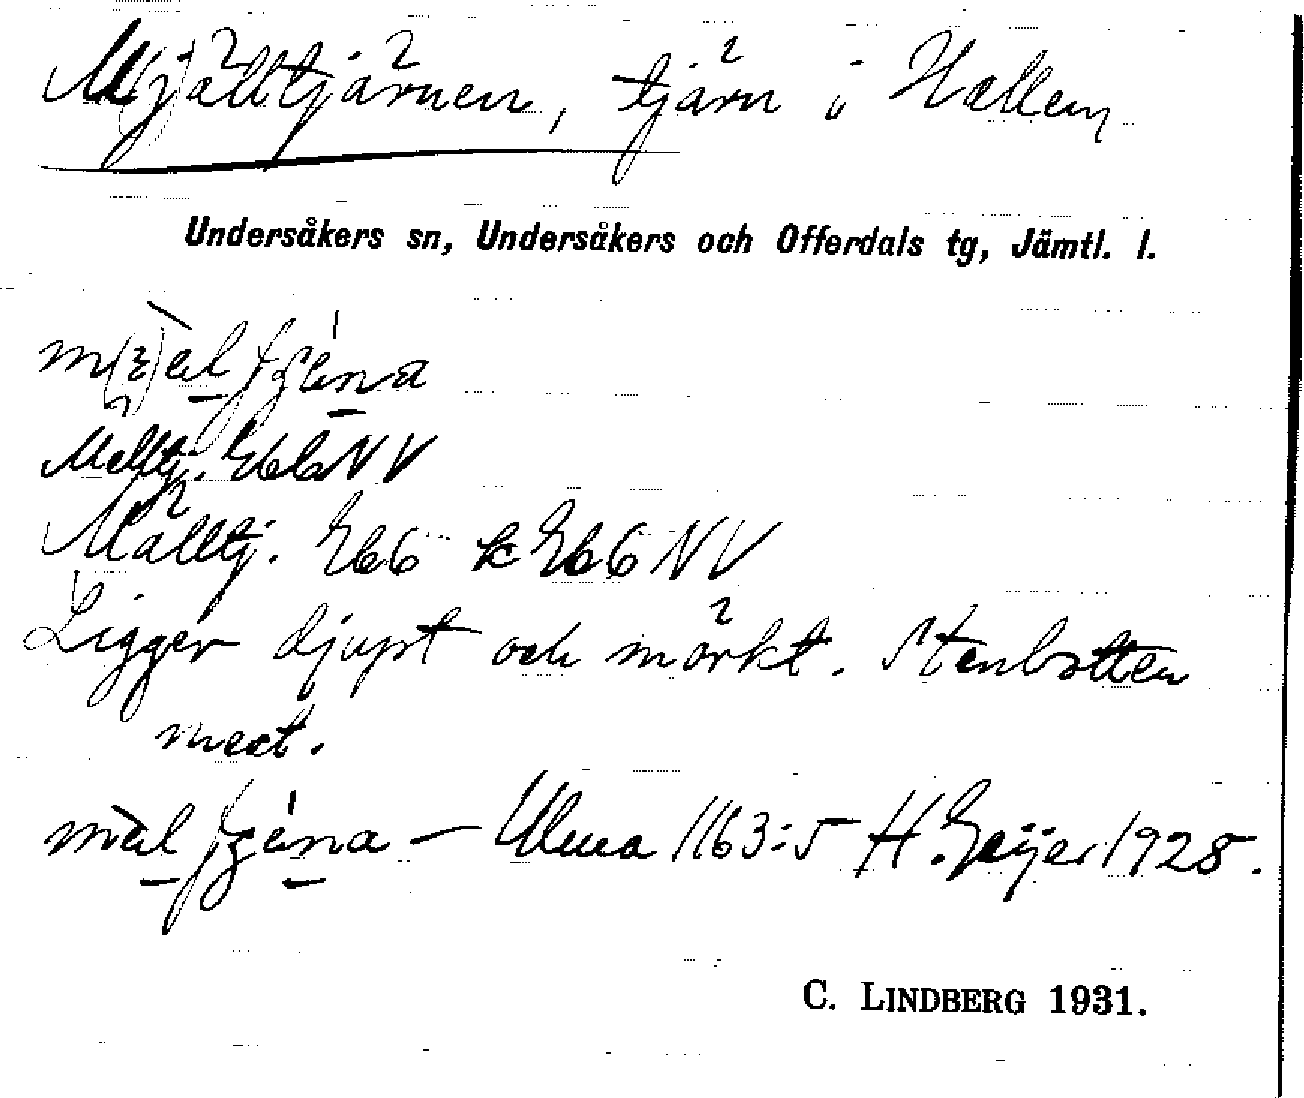 M(j)älltjärnen, tjärn i Hallen
Undersåkers sn, Undersåkers och Offerdals tg, Jämtl. l.
Mälltj. Eb6NV
Mälltj. Eb6 k Eb6NV
Ligger djupt och mörkt. Stenbotten
mest.
Ulma 1163:5 H. Geijer 1928.
C. LINDBERG 1931.